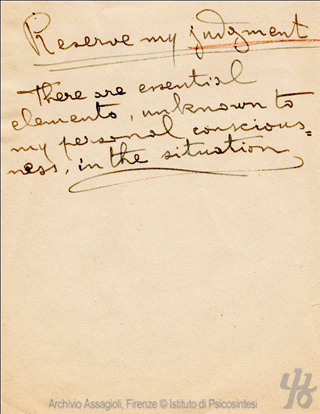 Reserve my judgment
There are essential
elements, unknown to
my personal conscious=
ness, in the situation
Archivio Assagioli, Firenze © Istituto di Psicosintesi